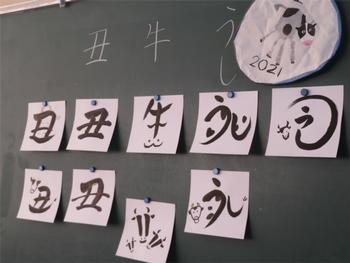 丑 牛 うし
2021
丑 丑 牛 うし うし
丑 丑 うし